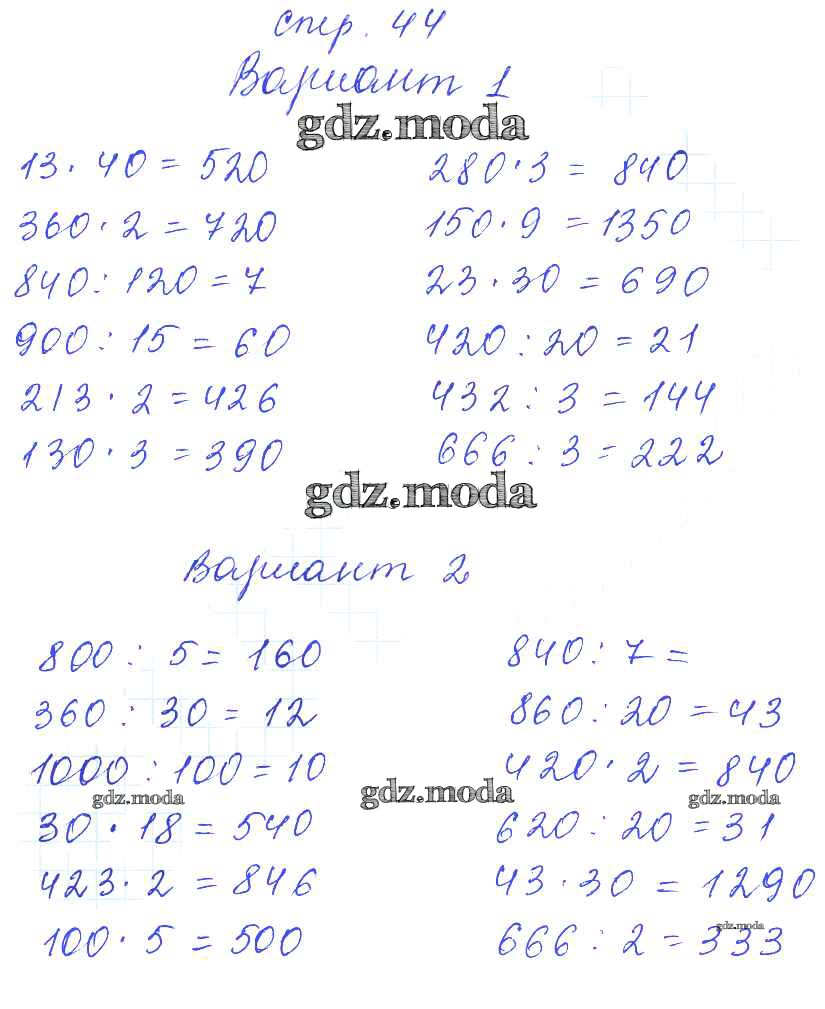 стр. 44
Вариант 1
gdz.moda
13 · 40 = 520
360 · 2 = 720
840 : 120 = 7
900 : 15 = 60
213 · 2 = 426
130 · 3 = 390
280 · 3 = 840
150 · 9 = 1350
23 · 30 = 690
420 : 20 = 21
432 : 3 = 144
666 : 3 = 222
gdz.moda
Вариант 2
800 : 5 = 160
360 : 30 = 12
1000 : 100 = 10
gdz.moda
30 · 18 = 540
423 · 2 = 846
100 · 5 = 500
gdz.moda
840 : 7 =
860 : 20 = 43
420 · 2 = 840
gdz.moda
620 : 20 = 31
43 · 30 = 1290
gdz.moda
666 : 2 = 333